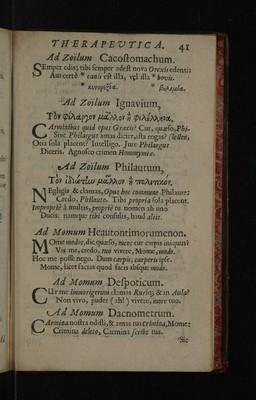 THERAPEVTICA. 41
Ad Zoilum Cacostomachum.
SEmper edis; tibi semper adest nova Orexis edenti:
Aut certè * canũ est illa, vel illa * bovis.
* κυνορεξία. * βουλιμία.
Ad Zoilum Ignavium,
Τὸν φίλαργον μᾶλλον ἢ φιλέλληνα.
CArminibus quid opus Græcis? Cur, quæso, Phi-
Sive Philargus amas dicier, ista rogas? (lellen,
Otia sola placent? Intelligo. Jure Philargus
Diceris. Agnosco crimen Homonymiæ.
Ad Zoilum Philautum,
Τὸν ἰδιώτην μᾶλλον ἢ πολιτικόν.
NEgligis & clamas, Opus hoc commune, Philaute:
Credo, Philaute. Tibi propria sola placent.
Impropriè à multis, propriè tu nomen ab uno
Ducis. namque tibi consulis, haud aliis.
Ad Momum Heautontimorumenon.
MOme mordes, dic quæso, meæ cur carpis iniqua?
Vis me, credo, tuo vivere, Mome, modo.
Hoc me posse nego. Dum carpis, carperis ipse.
Mome, licet facias quod facis absque modo.
Ad Momum Despoticum.
CUr me immorigerum clamas Rurisq; & in Aula?
Non vivo, pudet (ah!) vivere, more tuo.
Ad Momum Dacnometrum.
CArmina nostra odisti, & amas tua Crimina, Mome:
Crimina deleto, Carmina scribe tua.
Sic